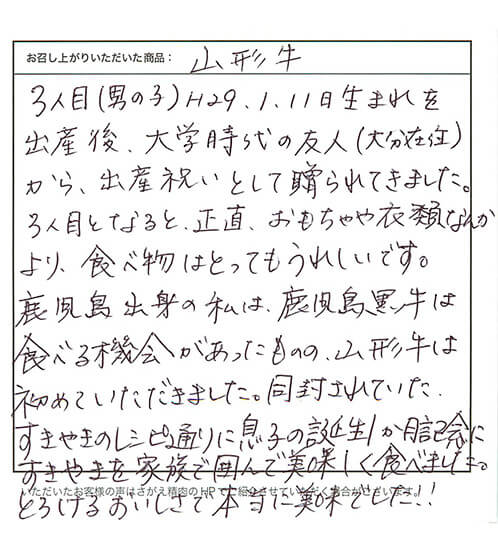 お召し上がりいただいた商品： 山形牛
3人目(男の子)H29.1.11日生まれを
出産後、大学時代の友人(大分在住)
から、出産祝いとして贈られてきました。
3人目となると、正直、おもちゃや衣類なんか
より、食べ物はとってもうれしいです。
鹿児島出身の私は、鹿児島黒牛は
食べる機会があったものの、山形牛は
初めていただきました。同封されていた、
すきやきのレシピ通りに息子の誕生1か月記念に
すきやきを家族で囲んで美味しく食べました。
いただいたお客様の声はさがえ精肉のHPでご紹介させていただく場合がございます。
とろけるおいしさで本当に美味でした!!